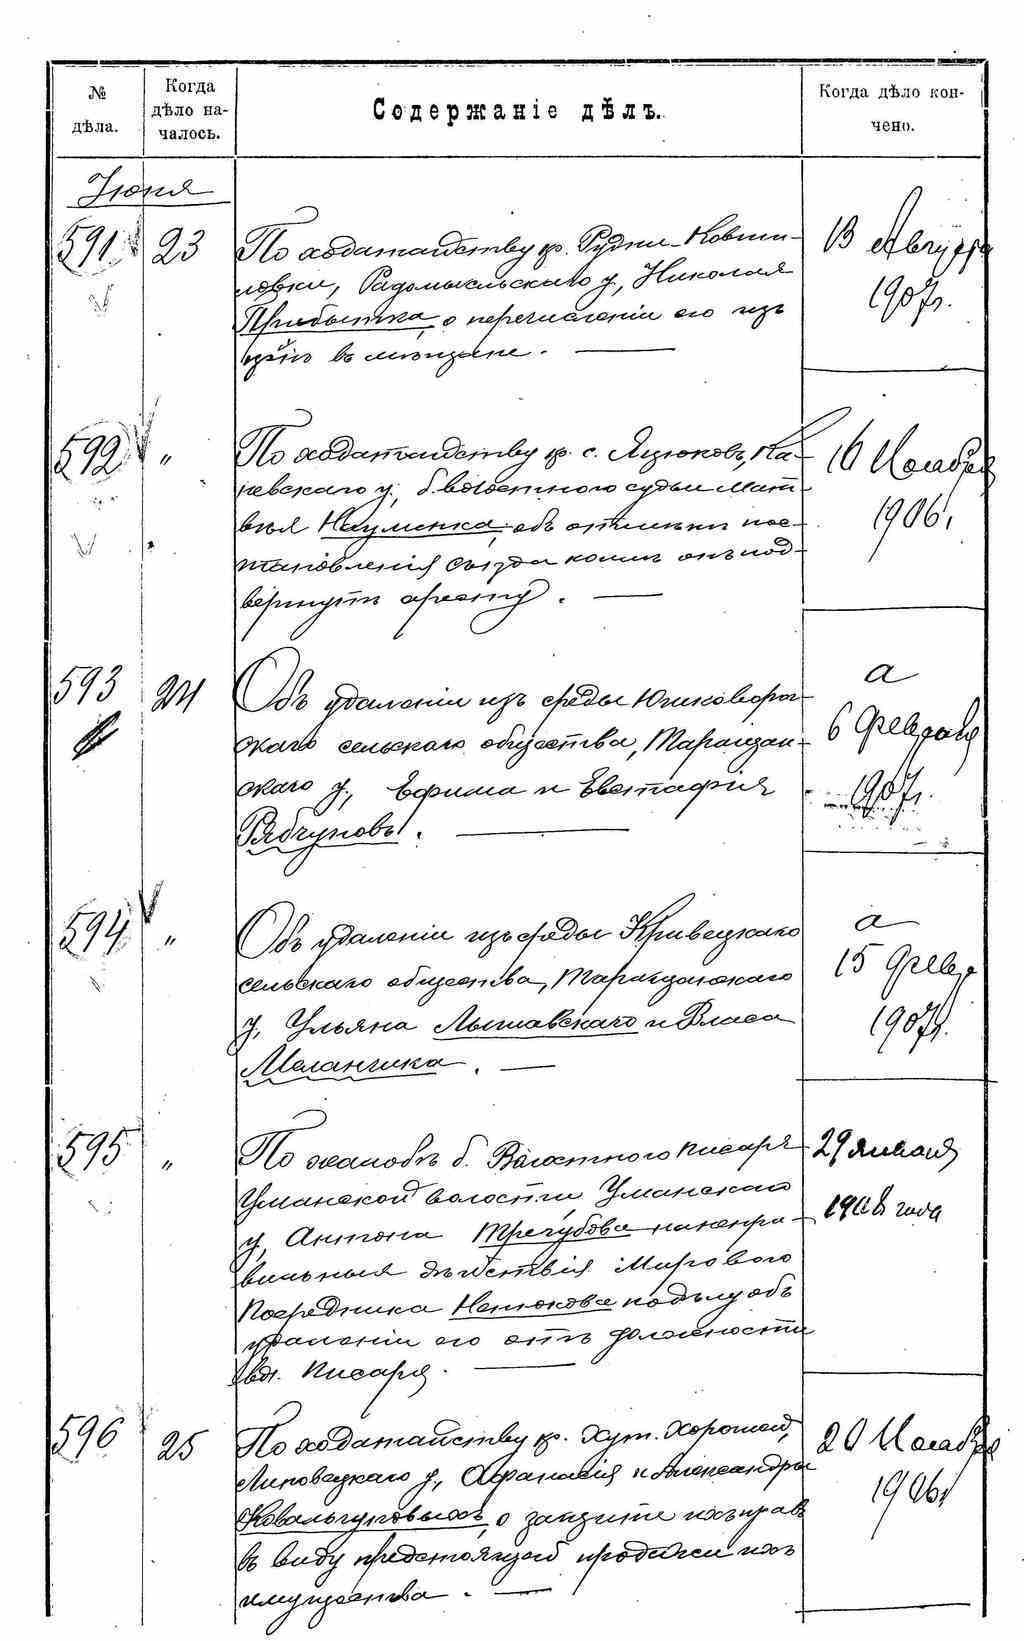 № дѣла.
Когда дѣло началось.
Содержаніе дѣлъ.
Когда дѣло кончено.
Іюня
591 23 По ходатайству кр. Рудни-
ловки, Радомысльскаго у, Николая
Прибытка, о перечисленіи его изъ
въ мѣщане.
13 Августа
1907г.
592 " По ходатайству кр. с. Яцюковъ, Ка-
невскаго у, б. волостного судьи Мат-
вѣя Науменка, объ отмѣнѣ пос-
тановленія съѣзда коимъ онъ под-
вергнутъ аресту.
16 Ноября
1906г.
593 24 Объ удаленіи изъ среды
скаго сельскаго общества, Таращан-
скаго у, Ефима и Евстафія
Рябчуновъ.
а
6 Февраля
1907г.
594 " Объ удаленіи изъ среды Кривецкаго
сельскаго общества, Таращанскаго
у, Ульяна и Власа
Меланчика.
а
15 Февр
1907г.
595 " По жалобѣ б. Волостного писаря
Уманской волости Уманскаго
у, Антона Трегубова на непра-
вильныя дѣйствія Мирового
Посредника Ненюкова по дѣлу объ
удаленіи его отъ должности
вол. писаря.
29 января
1908 года
596 25 По ходатайству кр. Хут. Хорошей,
Липовецкаго у, Афанасія и Александры
Ковальчуковыхъ, о защите ихъ правъ
въ виду предстоящей продажи ихъ
имущества.
20 Ноября
1906г